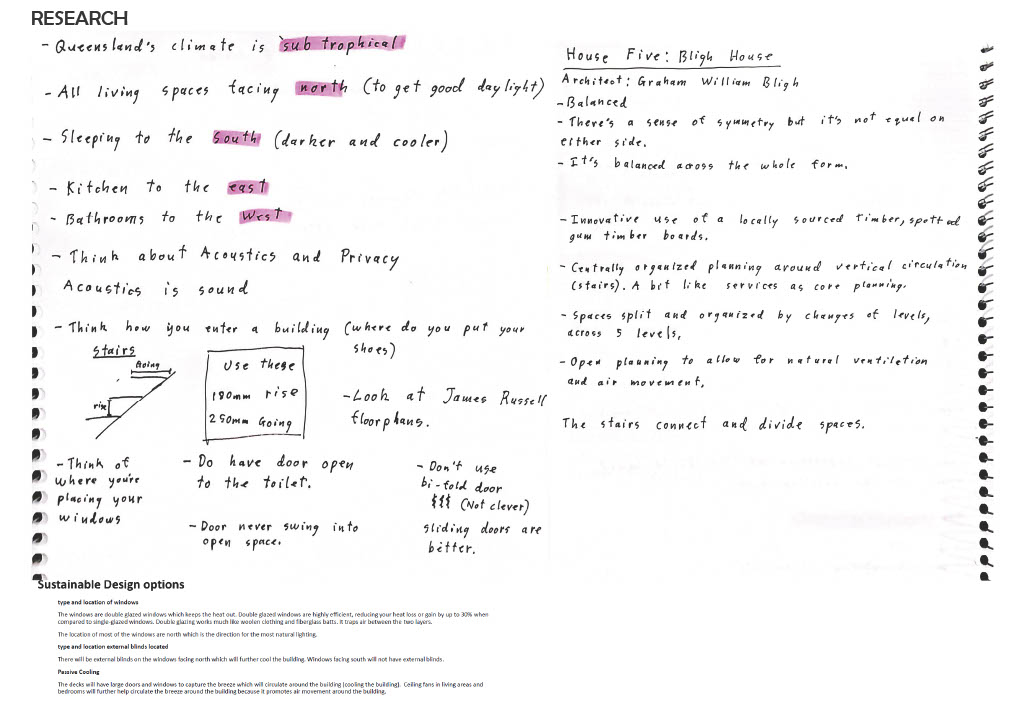 RESEARCH
- Queensland's climate is sub trophical
- All living spaces facing north (to get good daylight)
- Sleeping to the south (darker and cooler)
- Kitchen to the east
- Bathrooms to the West
- Think about Acoustics and Privacy
Acoustics is sound
- Think how you enter a building (where do you put your
shoes)
Stairs
Going
rise
Use these
190mm rise
250mm Going
- Look at James Russell
floorplans.
- Think of
where you're
placing your
windows
- Do have door open
to the toilet.
- Door never swing into
open space.
- Don't use
bi-fold door
$$$ (Not clever)
sliding doors are
better.
House Five: Bligh House
Architect: Graham William Bligh
- Balanced
- There's a sense of symmetry but it's not equal on
either side.
- It's balanced across the whole form.
- Innovative use of a locally sourced timber, spotted
gum timber boards.
- Centrally organized planning around vertical circulation
(stairs). A bit like services as core planning.
- Spaces split and organized by changes of levels,
across 5 levels,
- Open planning to allow for natural ventiletion
and air movement,
The stairs connect and divide spaces.
Sustainable Design options
type and location of windows
The windows are double glazed windows which keeps the heat out. Double glazed windows are highly efficient, reducing your heat loss or gain by up to 30% when
compared to single-glazed windows. Double glazing works much like woolen clothing and fiberglass batts. It traps air between the two layers.
The location of most of the windows are north which is the direction for the most natural lighting.
type and location external blinds located
There will be external blinds on the windows facing north which will further cool the building. Windows facing south will not have external blinds.
Passive Cooling
The decks will have large doors and windows to capture the breeze which will circulate around the building (cooling the building). Ceiling fans in living areas and
bedrooms will further help circulate the breeze around the building because it promotes air movement around the building.